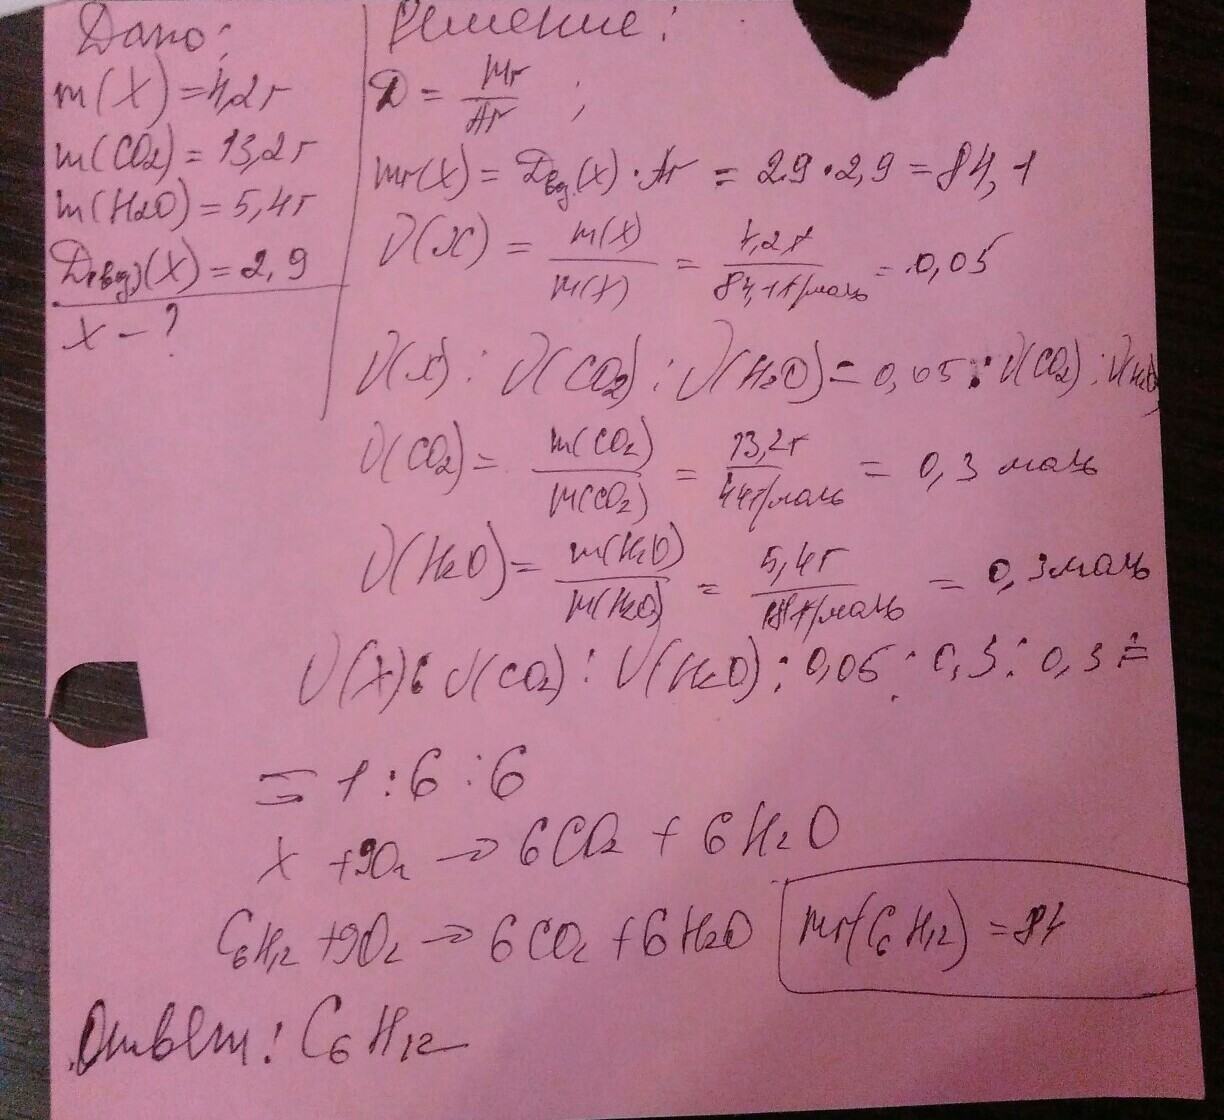 Дано:
m(X) = 4,2 г
m(CO2) = 13,2 г
m(H2O) = 5,4 г
(X) = 2,9
X – ?
Решение:
D = Mr / Ar ;
Mr(X) = Dвд(X) · Ar = 29 · 2,9 = 84,1
ν(X) = m(X) / M(X) = 4,2 г / 84,1 г/моль = 0,05
ν(X) : ν(CO2) : ν(H2O) = 0,05 : ν(CO2) : ν(H2O)
ν(CO2) = m(CO2) / M(CO2) = 13,2 г / 44 г/моль = 0,3 моль
ν(H2O) = m(H2O) / M(H2O) = 5,4 г / 18 г/моль = 0,3 моль
ν(X) : ν(CO2) : ν(H2O) : 0,05 : 0,3 : 0,3 =
= 1 : 6 : 6
X + 9O2 → 6CO2 + 6H2O
C6H12 + 9O2 → 6CO2 + 6H2O
Mr(C6H12) = 84
Ответ: C6H12